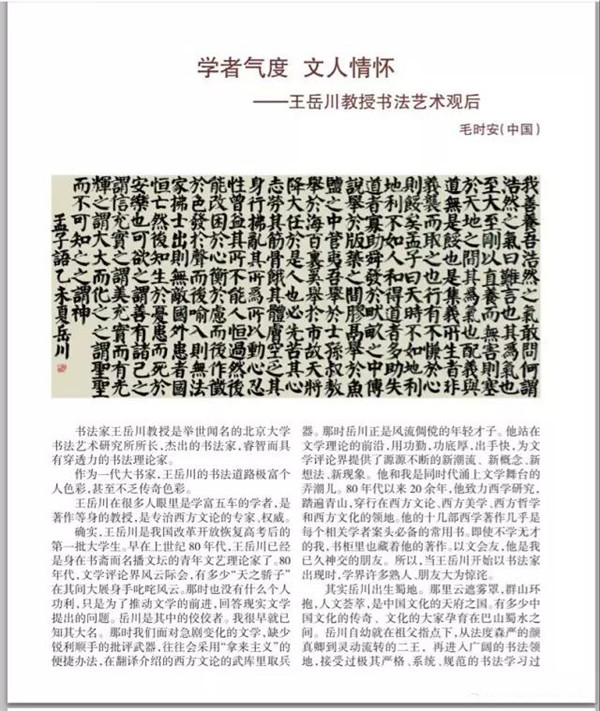 学者气度 文人情怀
——王岳川教授书法艺术观后
毛时安(中国)
我善養吾浩然之氣敢問何謂
浩然之氣曰難言也其爲氣也
至大至剛以直養而無害則塞
於天地之間其爲氣也配義與
道無是餒也是集義所生者非
義襲而取之也行有不慊於心
則餒矣孟子曰天時不如地利
地利不如人和得道者多助失
道者寡助舜發於畎畝之中傅
說舉於版築之間膠鬲舉於魚
鹽之中管夷吾舉於士孫叔敖
舉於海百里奚舉於市故天將
降大任於是人也必先苦其心
志勞其筋骨餓其體膚空乏其
身行拂亂其所爲所以動心忍
性曾益其所不能人恒過然後
能改困於心衡於慮而後作徵
於色發於聲而後喻入則無法
家拂士出則無敵國外患者國
恒亡然後知生於憂患而死於
安樂也可欲之謂善有諸己之
謂信充實之謂美充實而有光
輝之謂大大而化之之謂聖聖
而不可知之之謂神
孟子語乙未夏岳川
书法家王岳川教授是举世闻名的北京大学
书法艺术研究所所长,杰出的书法家,睿智而具
有穿透力的书法理论家。
作为一代大书家,王岳川的书法道路极富个
人色彩,甚至不乏传奇色彩。
王岳川在很多人眼里是学富五车的学者,是
著作等身的教授,是专治西方文论的专家、权威。
确实,王岳川是我国改革开放恢复高考后的
第一批大学生。早在上世纪80年代,王岳川已经
是身在书斋而名播文坛的青年文艺理论家了。80
年代,文学评论界风云际会,有多少“天之骄子”
在其间大展身手叱咤风云。那时也没有什么个人
功利,只是为了推动文学的前进,回答现实文学
提出的问题。岳川是其中的佼佼者。我很早就已
知其大名。那时我们面对急剧变化的文学,缺少
锐利顺手的批评武器,往往会采用“拿来主义”的
便捷办法,在翻译介绍的西方文论的武库里取兵
器。那时岳川正是风流倜傥的年轻才子。他站在
文学理论的前沿,用功勤,功底厚,出手快,为文
学评论界提供了源源不断的新潮流、新概念、新
想法、新现象。他和我是同时代涌上文学舞台的
弄潮儿。80年代以来20余年,他致力西学研究,
踏遍青山,穿行在西方文论、西方美学、西方哲学
和西方文化的领地。他的十几部西学著作几乎是
每个相关学者案头必备的常用书。即使不学无才
的我,书柜里也藏着他的著作。以文会友,他是我
已久神交的朋友。所以,当王岳川开始以书法家
出现时,学界许多熟人、朋友大为惊诧。
其实岳川出生蜀地。那里云遮雾罩,群山环
抱,人文荟萃,是中国文化的天府之国。有多少中
国文化的传奇、文化的大家孕育在巴山蜀水之
间。岳川自幼就在祖父指点下,从法度森严的颜
真卿到灵动流转的二王,再进入广阔的书法领
地,接受过极其严格、系统、规范的书法学习过